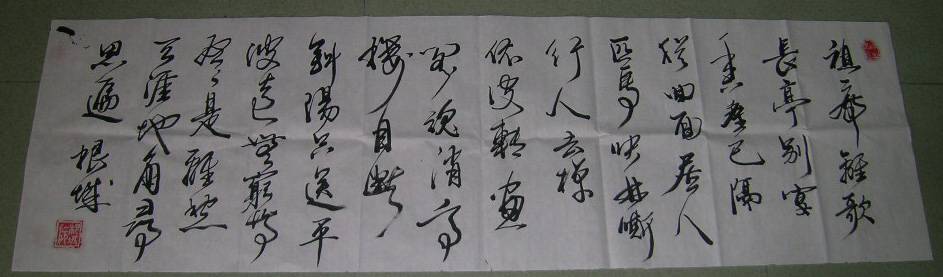 祖席離歌
長亭別宴
香塵已隔
猶回面居人
匹馬映林嘶
行人去棹
依波轉畫
閣魂消高
樓目斷
斜陽只送平
波遠無窮無
盡是離愁
天涯地角尋
思遍 根城